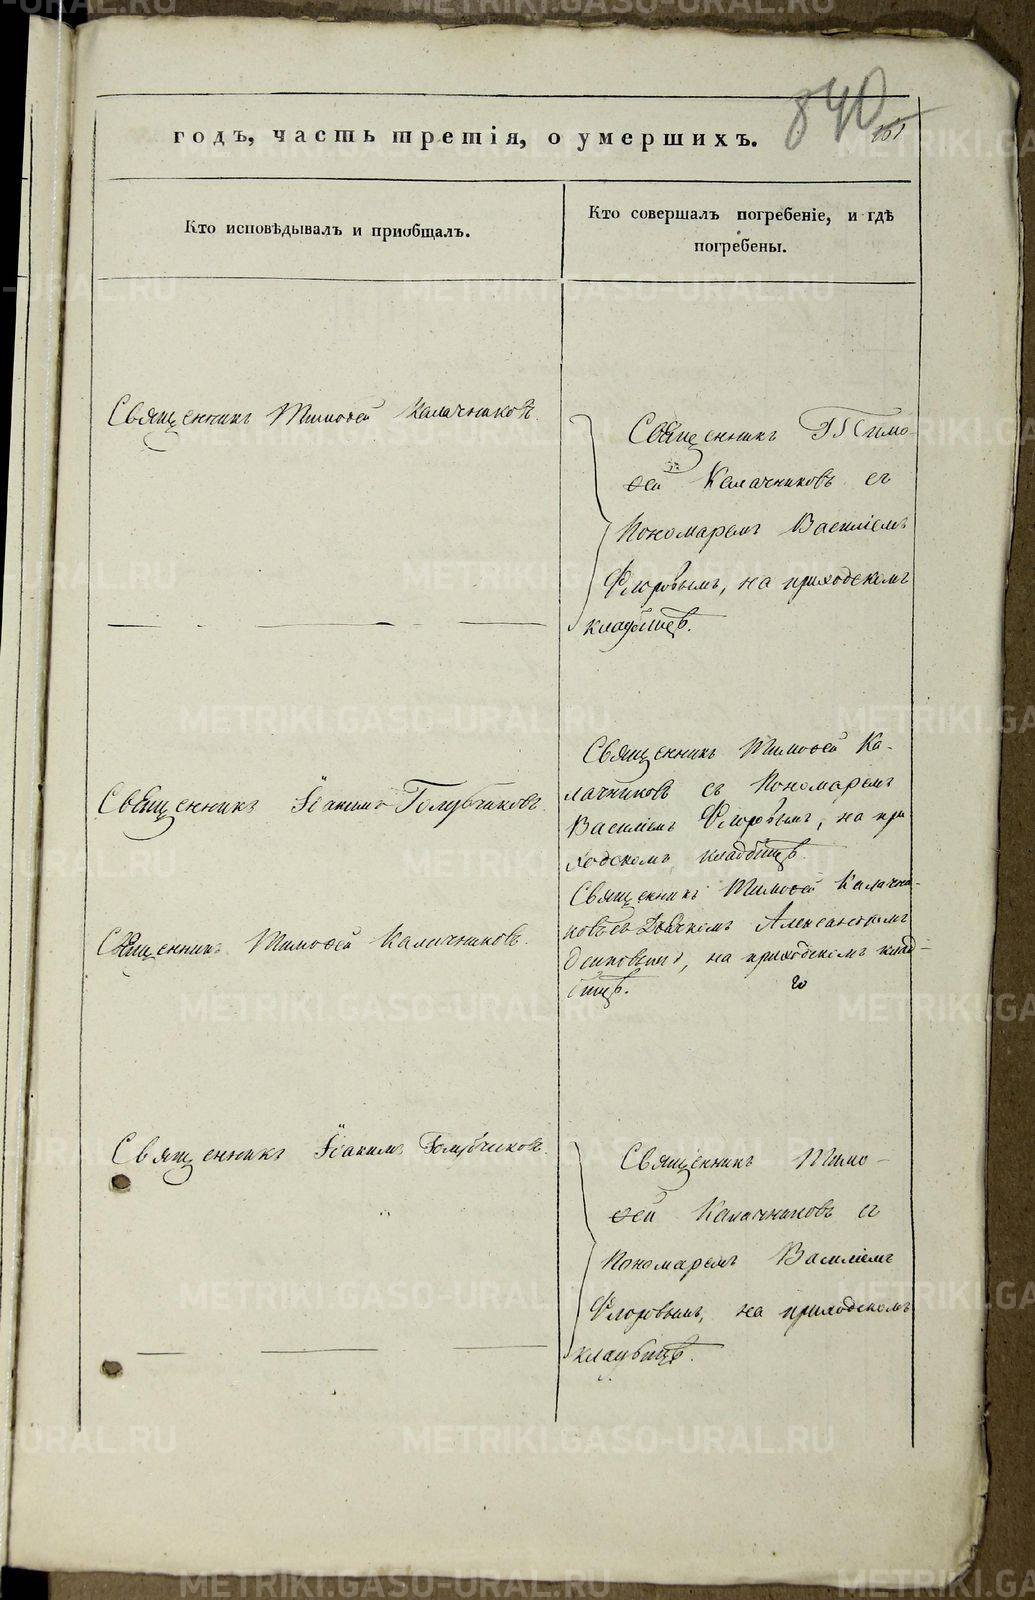 840
151
годъ, часть третія, о умершихъ.
Кто исповѣдывалъ и пріобщалъ.
Кто совершалъ погребеніе, и гдѣ
погребены.
Священникъ Тимоѳей Калачниковъ.
Священникъ Тимо-
ѳей Калачниковъ съ
Пономаремъ Василіемъ
Флоровымъ, на приходскомъ
кладбищѣ.
Священникъ Іоакимъ Голубчиковъ.
Священникъ Тимоѳей Ка-
лачниковъ съ Пономаремъ
Василіемъ Флоровымъ, на при-
ходскомъ кладбищѣ.
Священникъ Тимоѳей Калачниковъ.
Священникъ Тимоѳей Калачни-
ковъ съ Дьячкомъ Александромъ
на приходскомъ клад-
бищѣ.
Священникъ Іоакимъ Голубчиковъ.
Священникъ Тимо-
ѳей Калачниковъ съ
Пономаремъ Василіемъ
Флоровымъ, на приходскомъ
кладбищѣ.
METRIKI.GASO-URAL.RU